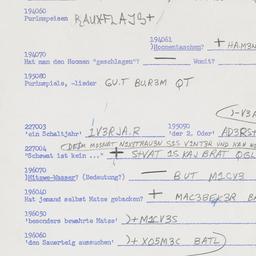 194060
Purimspeisen RAUXFLAJS+
194061
)Hoomentaschen? + HAM3N
194070
Hat man den Hooman "geschlagen"? — Womit?
195080
Purimspiele, -lieder GU.T BUR3M QT
)-V3A
227003 195090
'ein Schaltjahr' 1V3RJA.R 'der 2. Oder' AD3RST
227004
"Schewat ist kein ..." + STVAT 1S KAJ BRAT
196070
)Mitzwe-Wasser? (Bedeutung?) — BUT M1CV3
196040
Hat jemand selbst Matze gebacken? + MAC3BEK3R BA
196050
'besonders bewährte Matze' )+M1CV3S
196060
'den Sauerteig aussuchen' )+XO5M3C BATL)